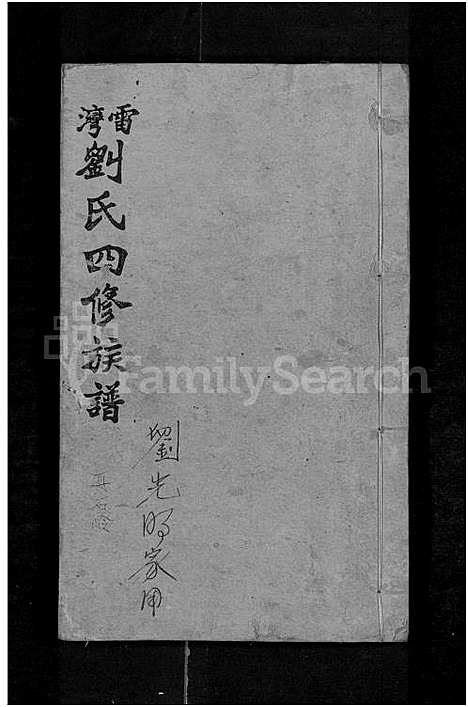 雷灣劉氏四修族譜
劉光明家用
FamilySearch